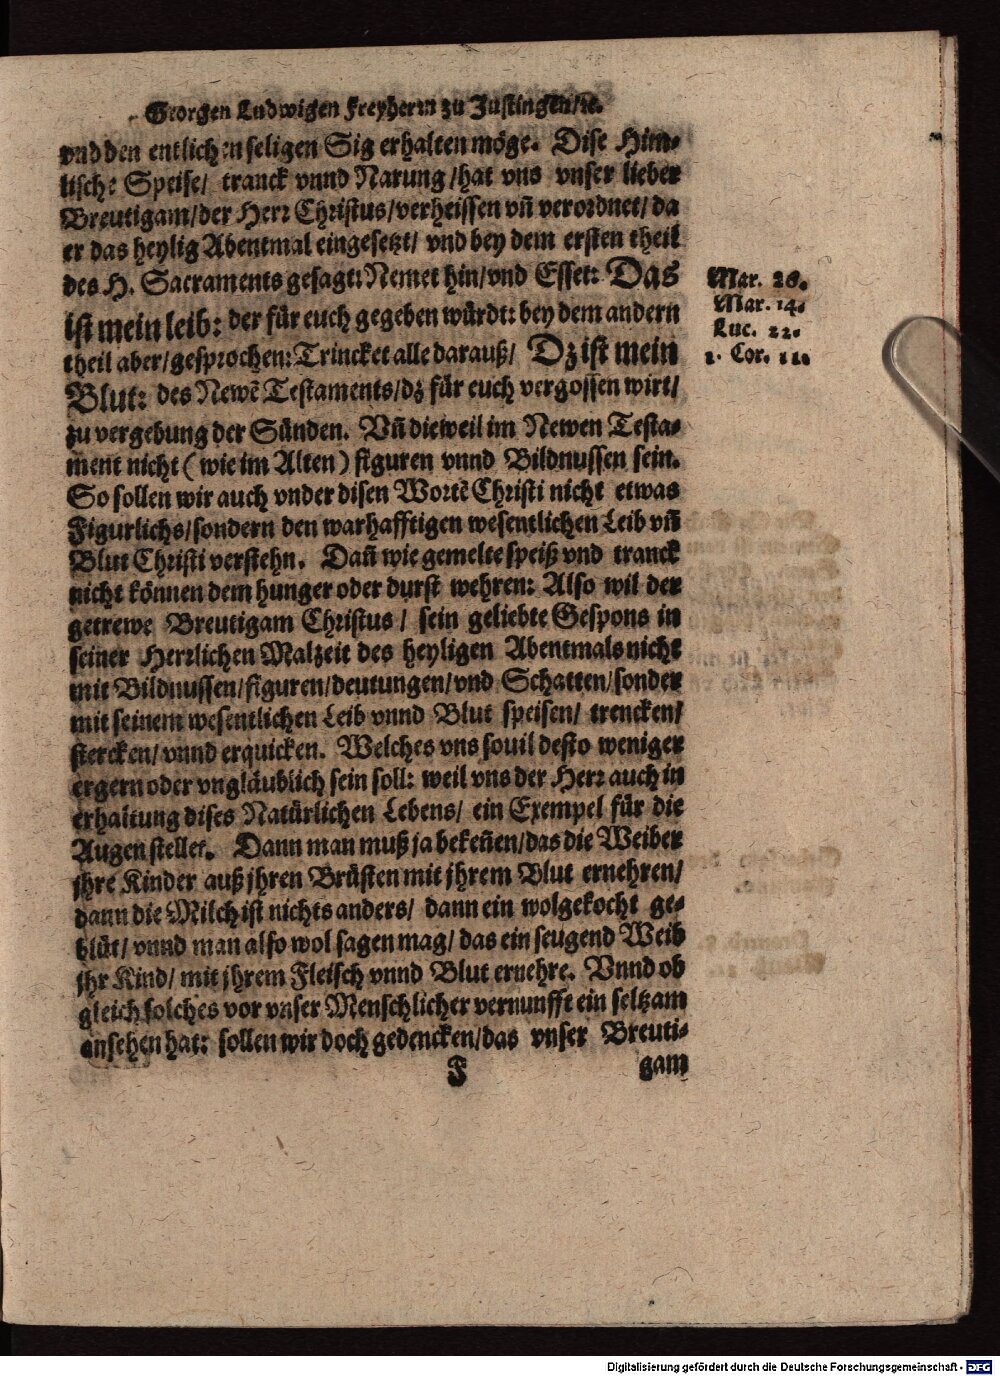 Georgen Ludwigen Freyherrn zu Justingen/ꝛc.
vnd den entlichen seligen Sig erhalten möge. Dise Him-
lische Speise/ tranck vnnd Narung/hat vns vnser lieber
Breutigam/der Herr Christus/verheissen vñ verordnet/da
er das heylig Abentmal eingesetzt/ vnd bey dem ersten theil
des H. Sacraments gesagt: Nemet hin/vnd Esset: Das
ist mein leib: der für euch gegeben würdt: bey dem andern
theil aber/gesprochen: Trincket alle darauß/ Dz ist mein
Blut: des Newẽ Testaments/dz für euch vergossen wirt/
zu vergebung der Sünden. Vñ dieweil im Newen Testa-
ment nicht (wie im Alten) figuren vnnd Bildnussen sein.
So sollen wir auch vnder disen Wortẽ Christi nicht etwas
Figurlichs/sondern den warhafftigen wesentlichen Leib vñ
Blut Christi verstehn. Dañ wie gemelte speiß vnd tranck
nicht können dem hunger oder durst wehren: Also wil der
getrewe Breutigam Christus/ sein geliebte Gespons in
seiner Herrlichen Malzeit des heyligen Abentmals nicht
mit Bildnussen/figuren/deutungen/vnd Schatten/sonder
mit seinem wesentlichen Leib vnnd Blut speisen/ trencken/
stercken/vnnd erquicken. Welches vns souil desto weniger
ergern oder vngläublich sein soll: weil vns der Herr auch in
erhaltung dises Natürlichen Lebens/ ein Exempel für die
Augen stellet. Dann man muß ja bekeñen/das die Weiber
jhre Kinder auß jhren Brüsten mit jhrem Blut ernehren/
dann die Milch ist nichts anders/ dann ein wolgekocht ge-
blüt/ vnnd man also wol sagen mag/ das ein seugend Weib
jhr Kind/ mit jhrem Fleisch vnnd Blut ernehre. Vnnd ob
gleich solches vor vnser Menschlicher vernunfft ein seltzam
ansehen hat: sollen wir doch gedencken/das vnser Breuti-
F gam
Mar. 26.
Mar. 14.
Luc. 22.
1. Cor. 11.
Digitalisierung gefördert durch die Deutsche Forschungsgemeinschaft - DFG